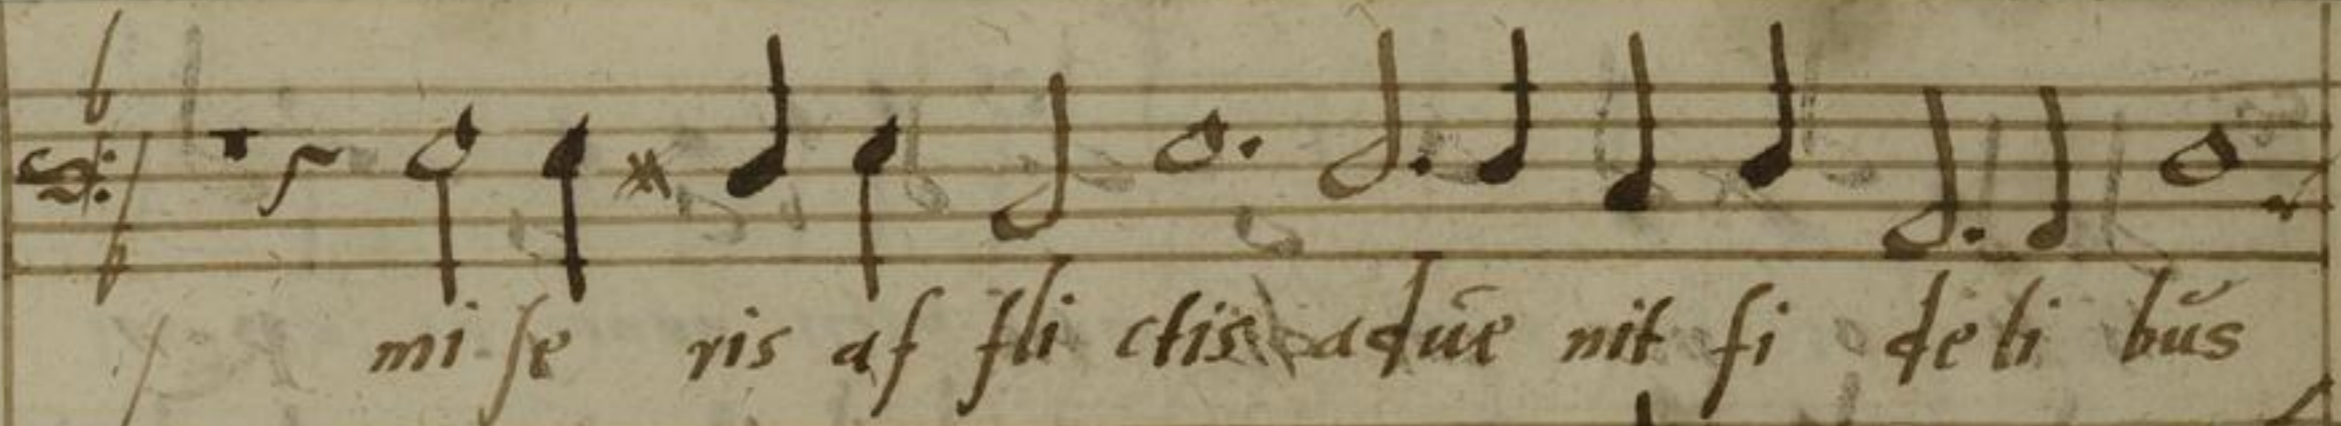 mi se ris af fli ctis adue nit fi deli bus